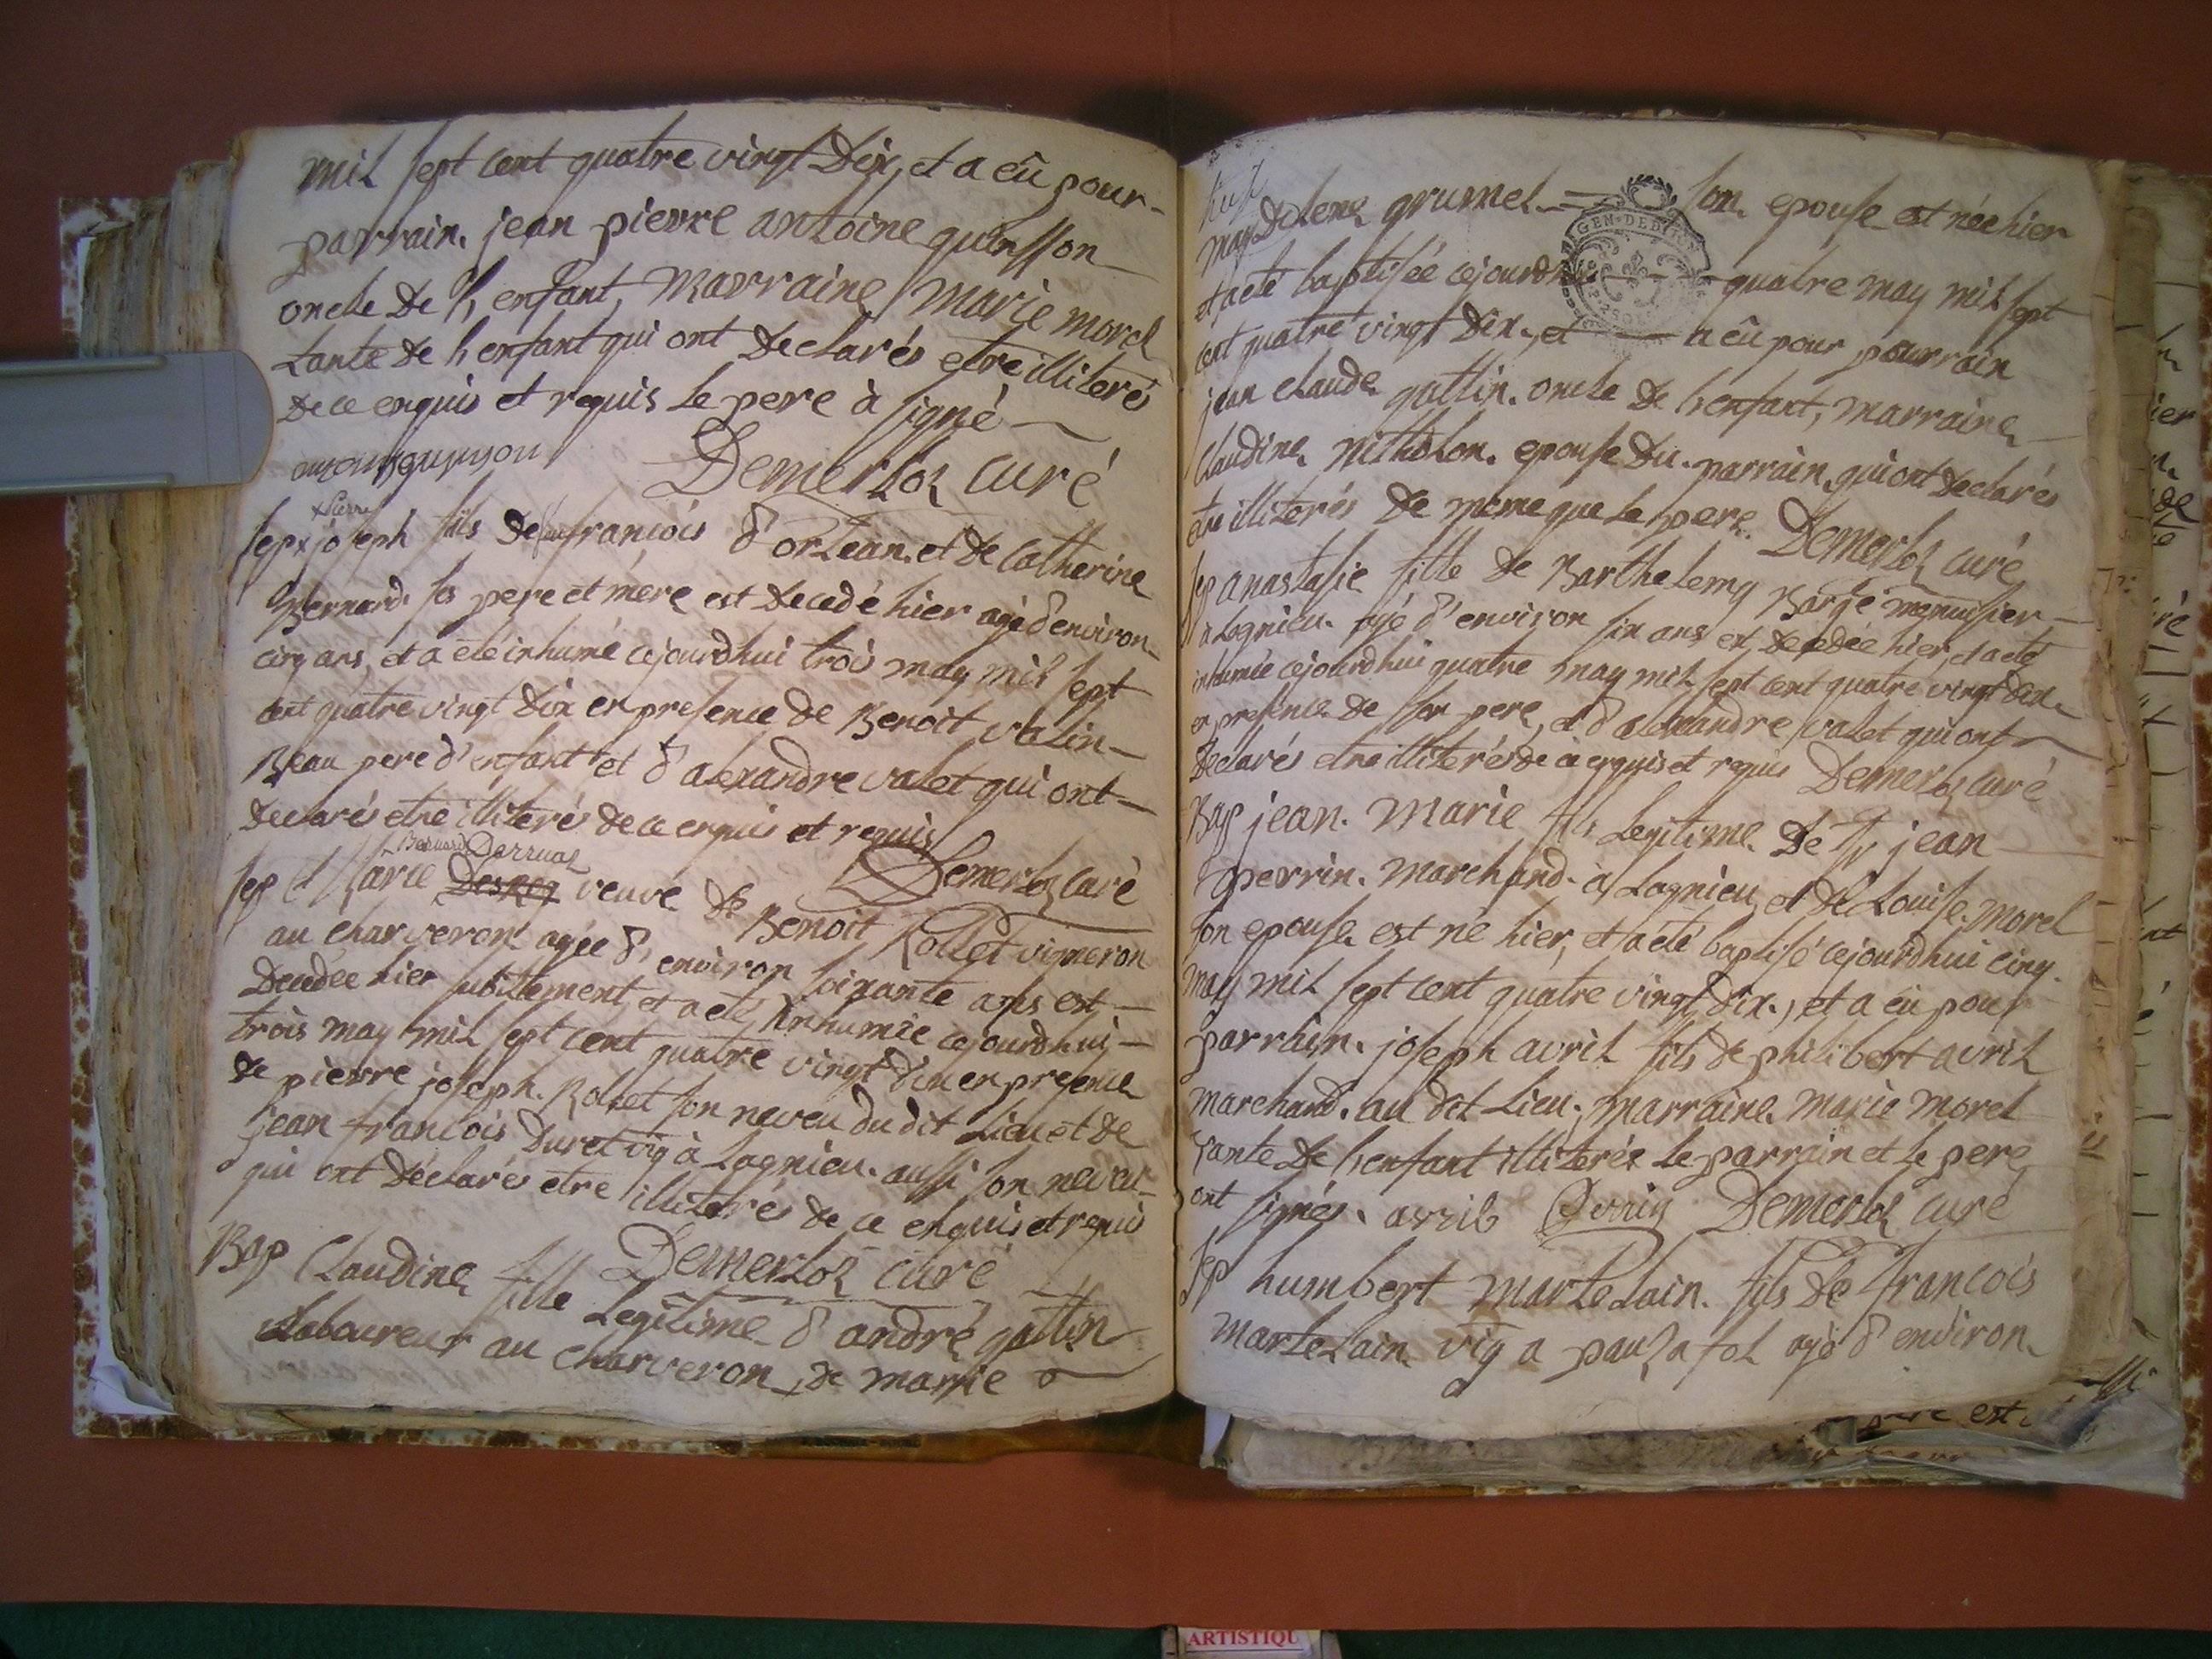 mil sept cent quatre vingt Dix, et a eû pour-
parrain. jean pierre antoine quinsson
oncle De l'enfant, Marraine Marie morel
tante de l'enfant qui ont Declarés etre illiterés
de ce enquis et requis le pere à signé
Demerloz curé
x pierre
sep x joseph fils De feu francois d'orlean. et de Catherine
Bernard ses pere et mere est Decedé hier agé d'environ
cinq ans, et a eté inhumé cejourdhui trois may mil sept
cent quatre vingt Dix en presence de Benoit valin
Beau pere d'enfant et d'alexandre valet qui ont
Declarés etre illiterés de ce enquis et requis
Demerloz curé
sep Marie veuve de Benoit Rollet vigneron
au charveron agée d'environ soixante ans est
Decedée hier subitement, et a eté inhumée cejourdhui
trois may mil sept cent quatre vingt dix en presence
de pierre joseph. Rollet son neveu du dit Lieu et de
jean francois Duret vig à Lagnieu. aussi son neveu
qui ont Declarés etre illiterés de ce enquis et requis
Demerloz curé
Bap Claudine fille Legitime d'andré gattin
Laboureur au charveron, de marie
magdelene grumel = son epouse est née hier
et a eté baptisée cejourdhui quatre may mil sept
GEN. DE
cent quatre vingt Dix, et a eû pour parrain
jean claude gattin. oncle De l'enfant, marraine
Claudine epouse Du parrain, qui ont Declarés
etre illiterés de meme que le pere. Demerloz curé
sep anastasie fille de Barthelemy Barge menuisier
a Lagnieu. agé d'environ six ans est Decedée hier, et a eté
inhumée cejourdhui quatre may mil sept cent quatre vingt dix
en presence de son pere, et d'alexandre valet qui ont
Declarés etre illiterés de ce enquis et requis Demerloz curé
Bap jean. Marie fils Legitime. De jean
perrin. Marchand. à Lagnieu, et de Louise. morel
son epouse est né hier, et a eté baptisé cejourdhui cinq.
may mil sept cent quatre vingt dix, et a eû pour
parrain. joseph avril fils de philibert avril
marchand. au dit Lieu. marraine. marie morel
tante De l'enfant illiterée le parrain et le pere
ont signés. avril Perrin Demerloz curé
sep humbert martelain. fils De francois
martelain vig a agé d'environ
ARTISTIQU